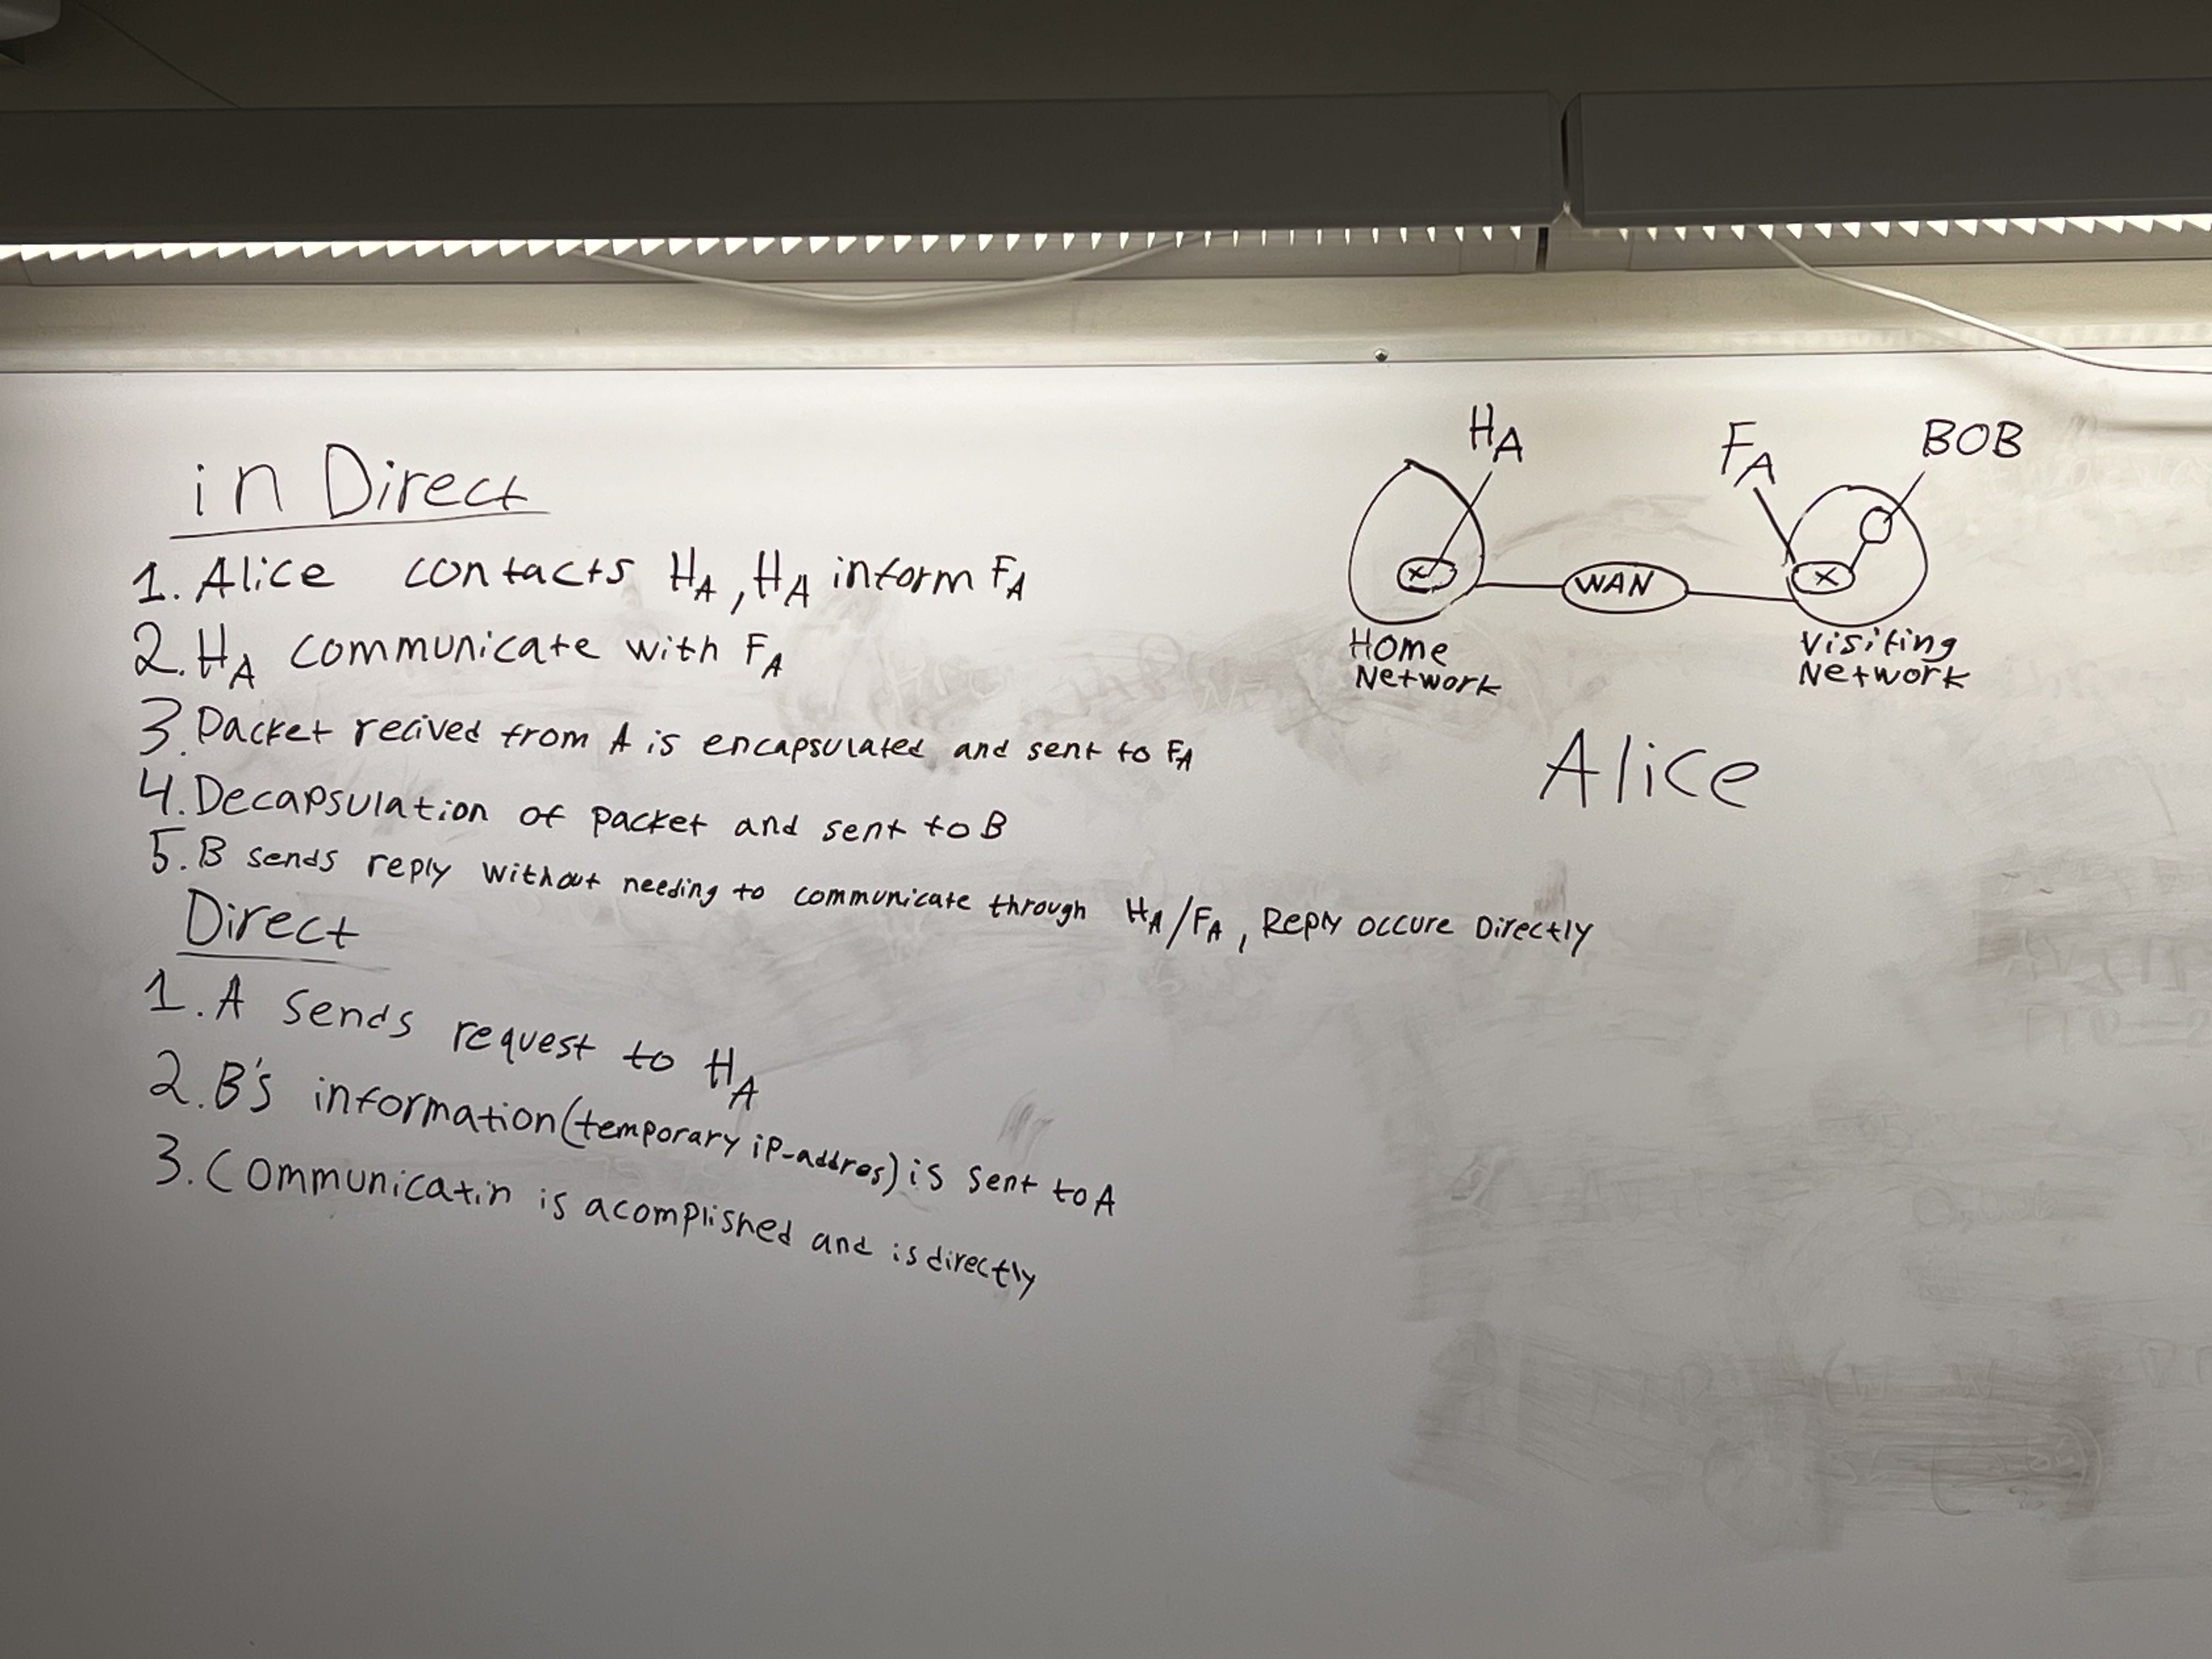 in Direct
1. Alice contacts HA, HA inform FA
2. HA communicate with FA
3. Packet recived from A is encapsulated and sent to FA
4. Decapsulation of packet and sent to B
5. B sends reply without needing to communicate through HA/FA, Reply occure Directly
Direct
1. A sends request to HA
2. B's information (temporary ip-addres) is sent to A
3. Communicatin is acomplished and is directly
HA
FA
BOB
WAN
Home
Network
Visiting
Network
Alice